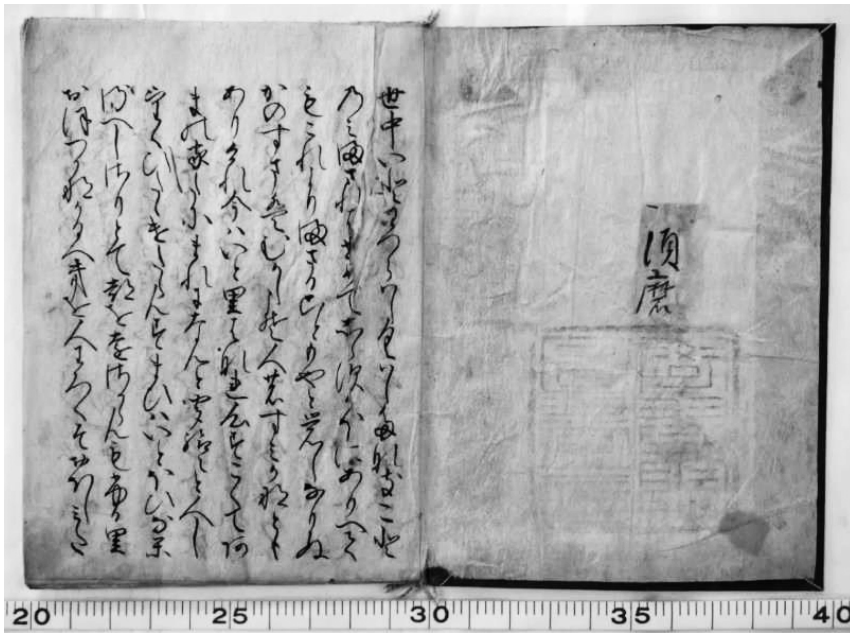 須磨
世中いとわつらはしくはしたなきこと
のみまされはせめてしらすかほにありへて
もこれよりまさることもやと覚しなりぬ
かのすまはむかしこそ人のすみかなとも
ありけれ今はいと里はなれ心すこくてあ
まの家たにまれになんと聞給へと人し
けくひたゝけたらんすまひはいとほいな
かるへしさりとて都を遠さからんも古里
おほつかなかるへきを人わろくそおほしみた
20 25 30 35 40